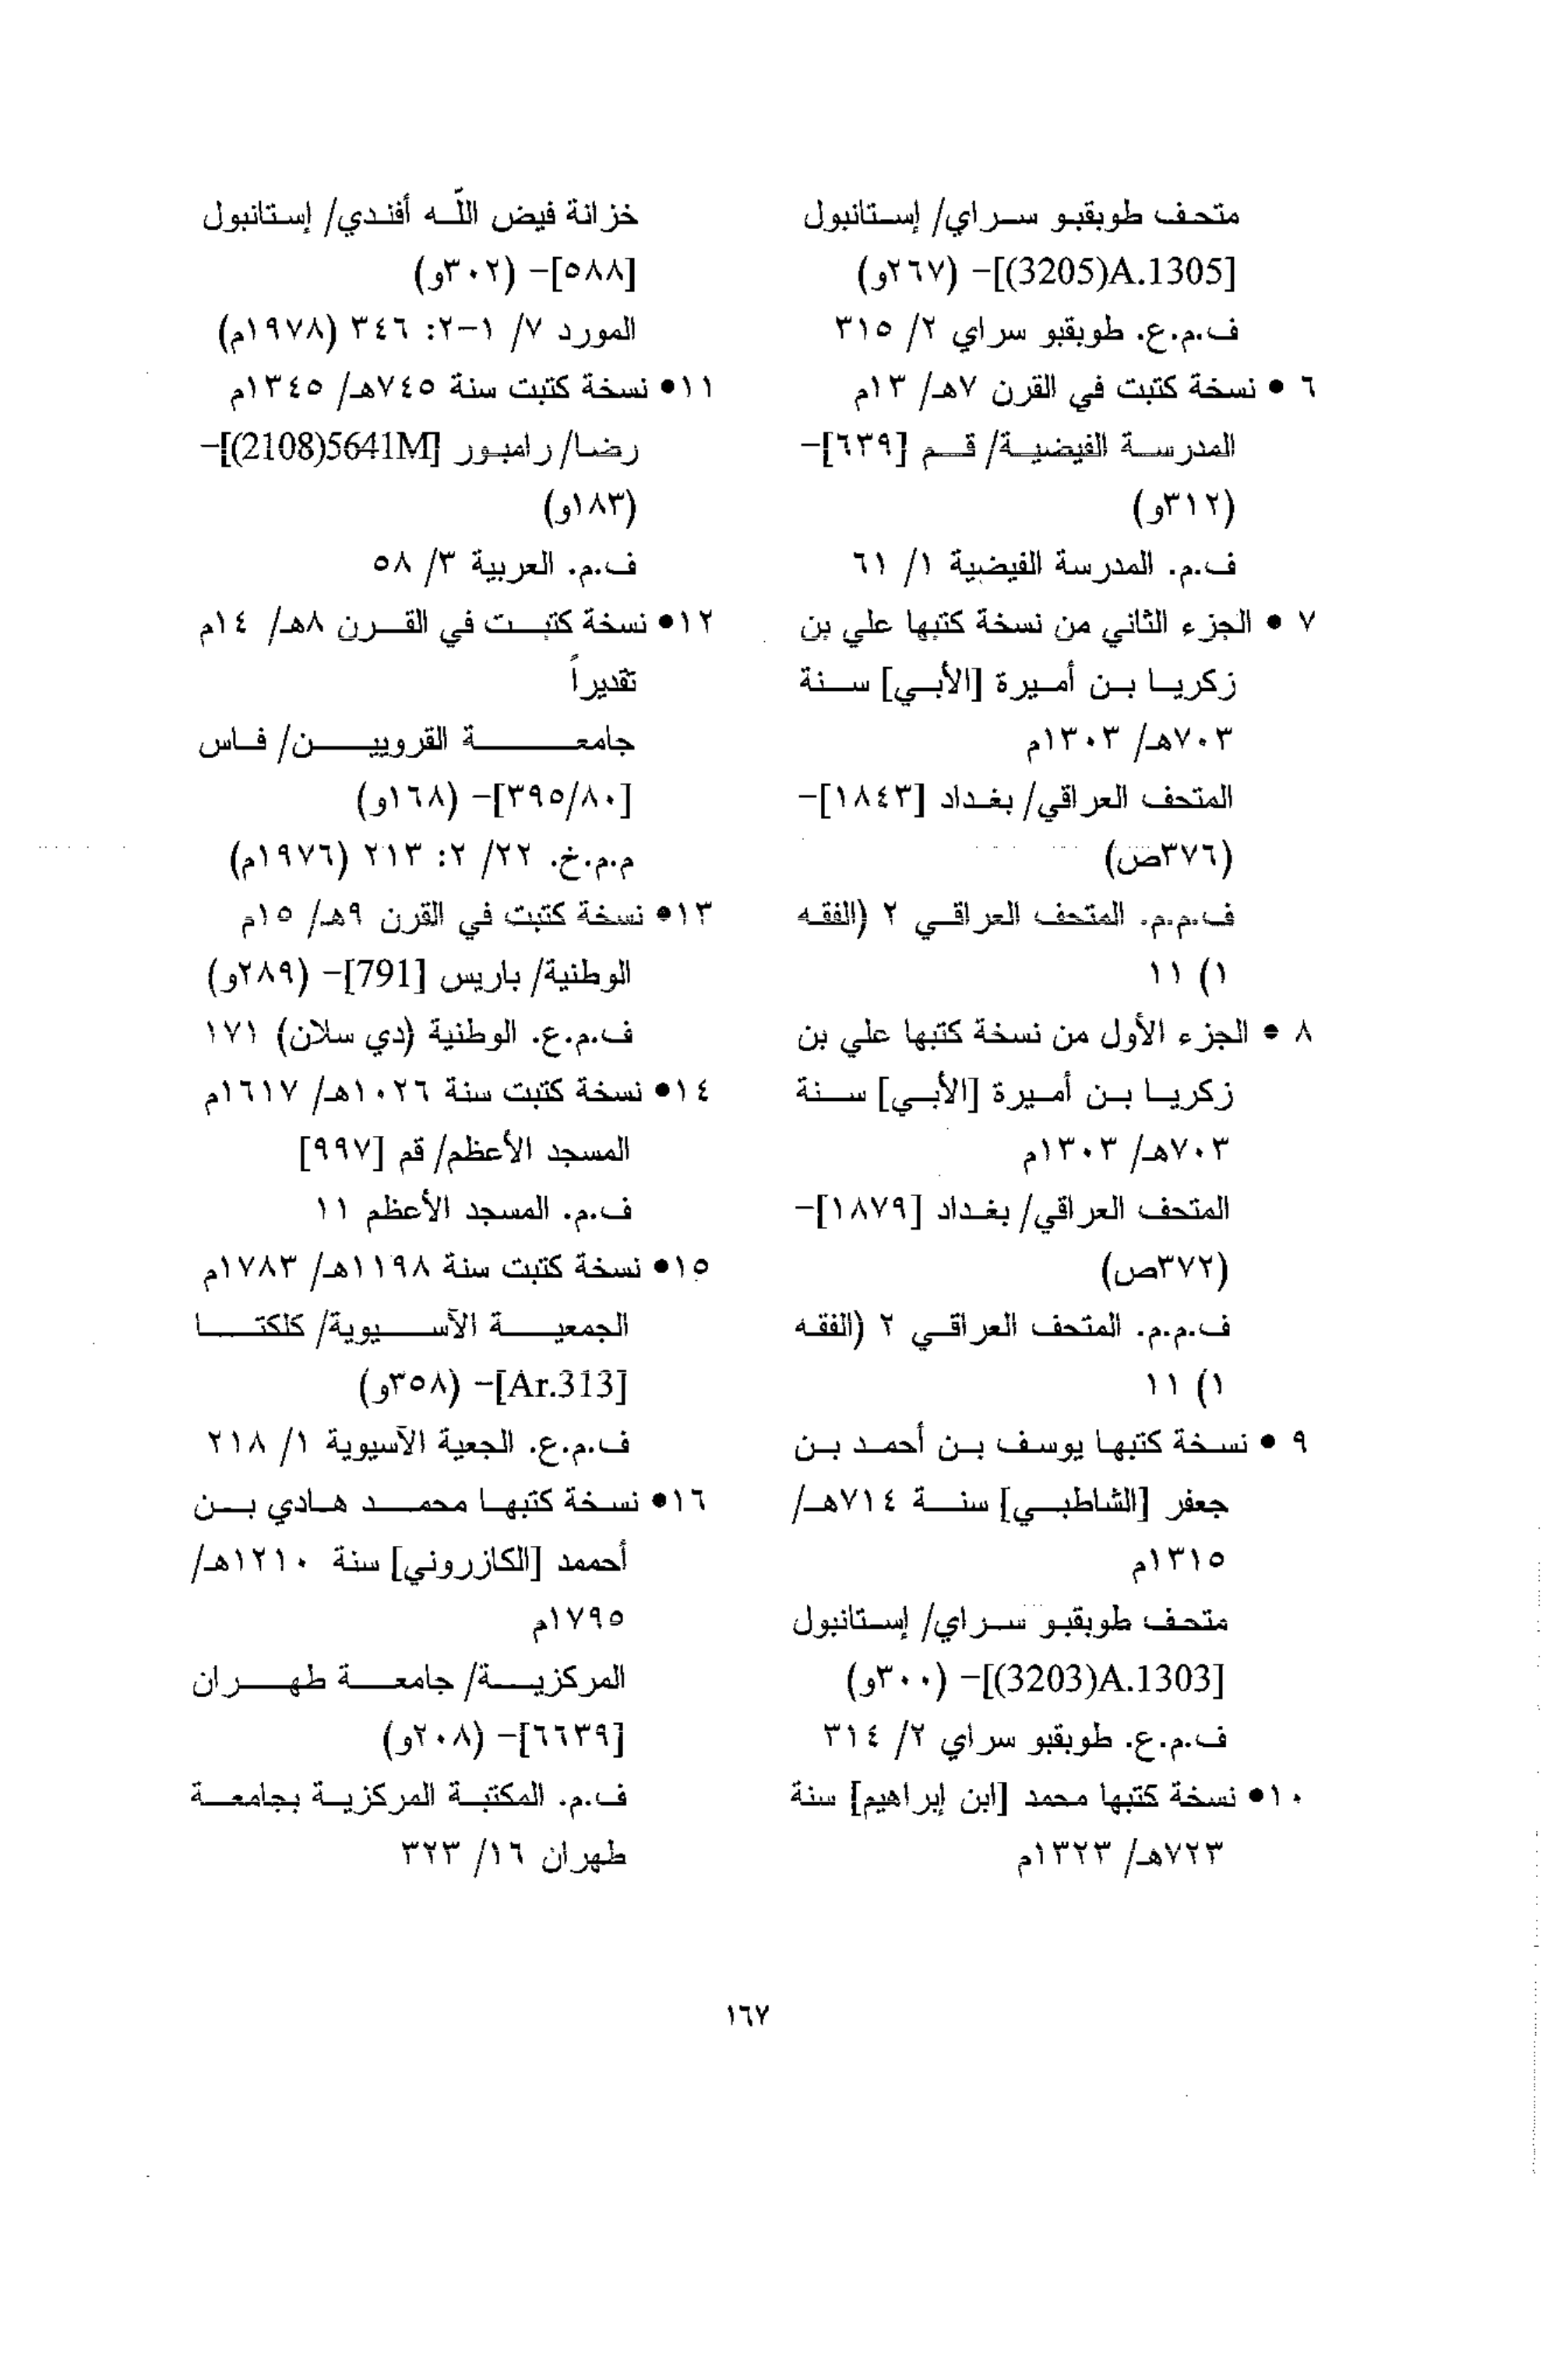 متحف طوبقبو سراي/ إستانبول
[3205)A.1305)]- (٢٦٧و)
ف.م.ع. طوبقبو سراي ٢/ ٣١٥
٦ • نسخة كتبت في القرن ٧هـ/ ١٣م
المدرسة الفيضية/ قم [٦٣٩]-
(٣١٢و)
ف.م. المدرسة الفيضية ١/ ٦١
٧ • الجزء الثاني من نسخة كتبها علي بن
زكريا بن أميرة [الأبي] سنة
٧٠٣هـ/ ١٣٠٣م
المتحف العراقي/ بغداد [١٨٤٣]-
(٣٧٦ص)
ف.م.م. المتحف العراقي ٢ (الفقه
١) ١١
٨ • الجزء الأول من نسخة كتبها علي بن
زكريا بن أميرة [الأبي] سنة
٧٠٣هـ/ ١٣٠٣م
المتحف العراقي/ بغداد [١٨٧٩]-
(٣٧٢ص)
ف.م.م. المتحف العراقي ٢ (الفقه
١) ١١
٩ • نسخة كتبها يوسف بن أحمد بن
جعفر [الشاطبي] سنة ٧١٤هـ/
١٣١٥م
متحف طوبقبو سراي/ إستانبول
[3203)A.1303)]- (٣٠٠و)
ف.م.ع. طوبقبو سراي ٢/ ٣١٤
١٠• نسخة كتبها محمد [ابن إبراهيم] سنة
٧٢٣هـ/ ١٣٢٣م
خزانة فيض اللّه أفندي/ إستانبول
[٥٨٨]- (٣٠٢و)
المورد ٧/ ١-٢: ٣٤٦ (١٩٧٨م)
١١• نسخة كتبت سنة ٧٤٥هـ/ ١٣٤٥م
رضا/ رامبور [2108)5641M)]-
(١٨٣و)
ف.م. العربية ٣/ ٥٨
١٢• نسخة كتبت في القرن ٨هـ/ ١٤م
تقديراً
جامعة القرويين/ فاس
[٣٩٥/٨٠]- (١٦٨و)
م.م.خ. ٢٢/ ٢: ٢١٣ (١٩٧٦م)
١٣• نسخة كتبت في القرن ٩هـ/ ١٥م
الوطنية/ باريس [791]- (٢٨٩و)
ف.م.ع. الوطنية (دي سلان) ١٧١
١٤• نسخة كتبت سنة ١٠٢٦هـ/ ١٦١٧م
المسجد الأعظم/ قم [٩٩٧]
ف.م. المسجد الأعظم ١١
١٥• نسخة كتبت سنة ١١٩٨هـ/ ١٧٨٣م
الجمعية الآسيوية/ كلكتا
[Ar.313]- (٣٥٨و)
ف.م.ع. الجعية الآسيوية ١/ ٢١٨
١٦• نسخة كتبها محمد هادي بن
أحممد [الكازروني] سنة ١٢١٠هـ/
١٧٩٥م
المركزية/ جامعة طهران
[٦٦٣٩]- (٢٠٨و)
ف.م. المكتبة المركزية بجامعة
طهران ١٦/ ٣٢٣
١٦٧